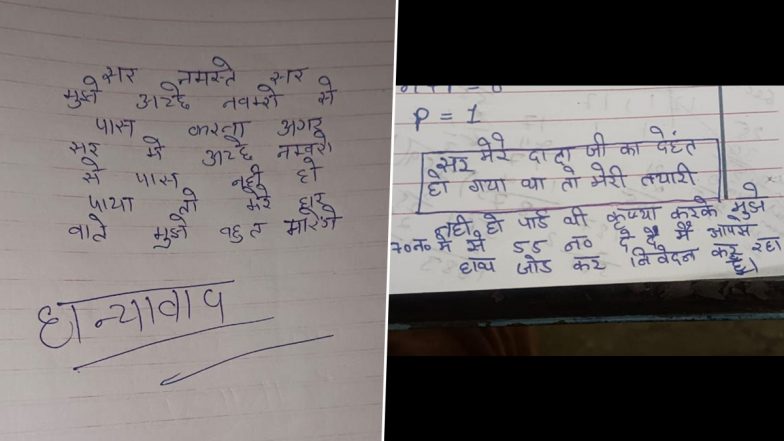 सर नमस्ते सर
मुझे अच्छे नवम्रो से
पास करना अगर
सर मे अच्छे नम्वरो
से पास नही हो
पाया तो मेरे घर
वाले मुझे वहुत मारेगे
धान्यावाव
P = 1
सर मेरे दादा जी का देहंत
हो गया था तो मेरी तयारी
नही हो पाई थी कृप्या करके मुझे
70 न० मे से 55 न० दे दे मैं आपसे
हाथ जोड कर निवेदन कर रहा
हूँ।